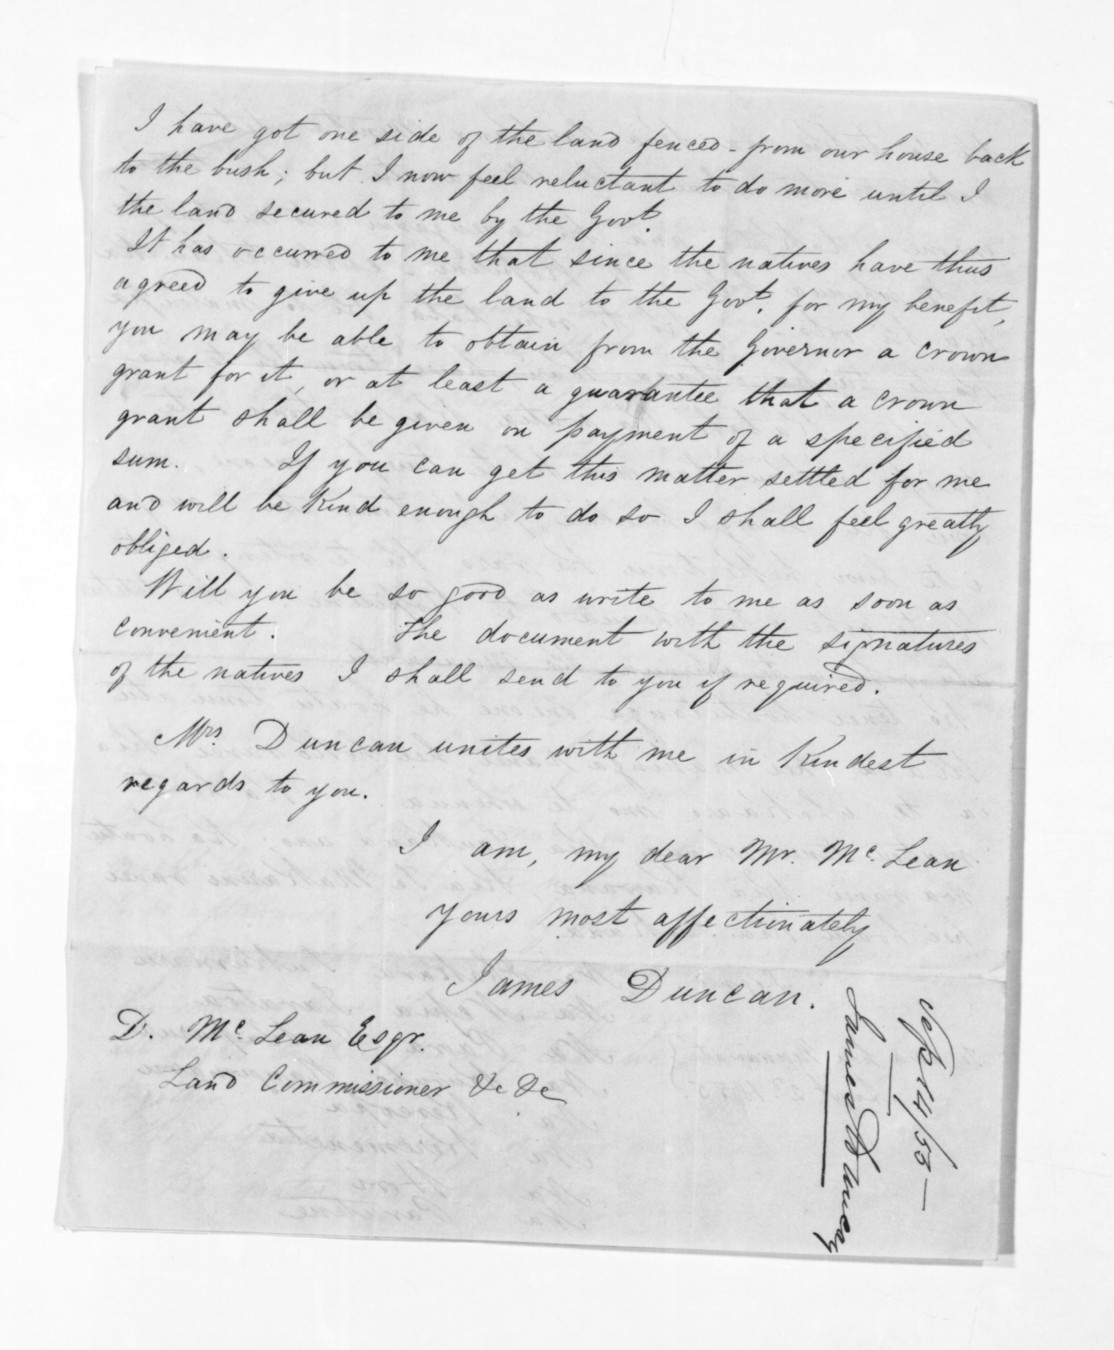 I have got one side of the land fenced - from our house back
to the bush; but I now feel reluctant to do more until I
the land secured to me by the Govt.
It has occurred to me that since the natives have thus
agreed to give up the land to the Govt. for my benefit,
you may be able to obtain from the Governor a crown
grant for it, or at least a guarantee that a crown
grant shall be given on payment of a specified
sum. If you can get this matter settled for me
and will be kind enough to do so I shall feel greatly
obliged.
Will you be so good as write to me as soon as
convenient. The document with the signatures
of the natives I shall send to you if required.
Mrs. Duncan unites with me in kindest
regards to you.
I am, my dear Mr. Mc. Lean
yours most affectionately
James Duncan.
D. Mc. Lean Esqr.
Land Commissioner &c &c
Sept 14/55 —
James Duncan